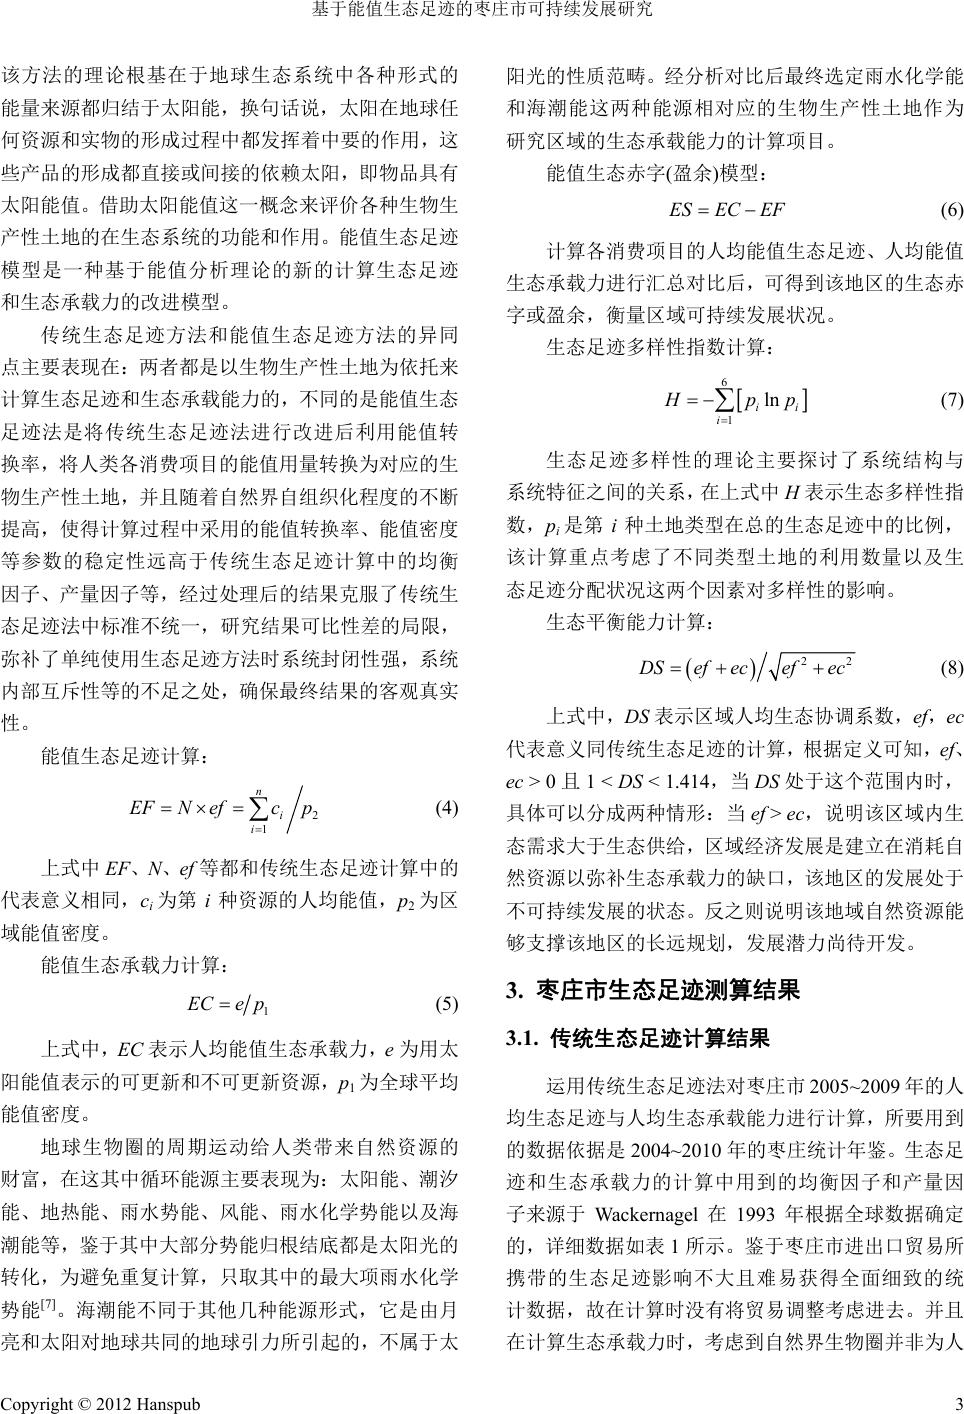 基于能值生态足迹的枣庄市可持续发展研究
该方法的理论根基在于地球生态系统中各种形式的
能量来源都归结于太阳能，换句话说，太阳在地球任
何资源和实物的形成过程中都发挥着中要的作用，这
些产品的形成都直接或间接的依赖太阳，即物品具有
太阳能值。借助太阳能值这一概念来评价各种生物生
产性土地的在生态系统的功能和作用。能值生态足迹
模型是一种基于能值分析理论的新的计算生态足迹
和生态承载力的改进模型。
传统生态足迹方法和能值生态足迹方法的异同
点主要表现在：两者都是以生物生产性土地为依托来
计算生态足迹和生态承载能力的，不同的是能值生态
足迹法是将传统生态足迹法进行改进后利用能值转
换率，将人类各消费项目的能值用量转换为对应的生
物生产性土地，并且随着自然界自组织化程度的不断
提高，使得计算过程中采用的能值转换率、能值密度
等参数的稳定性远高于传统生态足迹计算中的均衡
因子、产量因子等，经过处理后的结果克服了传统生
态足迹法中标准不统一，研究结果可比性差的局限，
弥补了单纯使用生态足迹方法时系统封闭性强，系统
内部互斥性等的不足之处，确保最终结果的客观真实
性。
能值生态足迹计算：
EF = N × ef = ∑_{i=1}^{n} c_i / p_2 (4)
上式中 EF、N、ef 等都和传统生态足迹计算中的
代表意义相同，c_i 为第 i 种资源的人均能值，p_2 为区
域能值密度。
能值生态承载力计算：
EC = e / p_1 (5)
上式中，EC 表示人均能值生态承载力，e 为用太
阳能值表示的可更新和不可更新资源，p_1 为全球平均
能值密度。
地球生物圈的周期运动给人类带来自然资源的
财富，在这其中循环能源主要表现为：太阳能、潮汐
能、地热能、雨水势能、风能、雨水化学势能以及海
潮能等，鉴于其中大部分势能归根结底都是太阳光的
转化，为避免重复计算，只取其中的最大项雨水化学
势能[7]。海潮能不同于其他几种能源形式，它是由月
亮和太阳对地球共同的地球引力所引起的，不属于太
阳光的性质范畴。经分析对比后最终选定雨水化学能
和海潮能这两种能源相对应的生物生产性土地作为
研究区域的生态承载能力的计算项目。
能值生态赤字(盈余)模型：
ES = EC − EF (6)
计算各消费项目的人均能值生态足迹、人均能值
生态承载力进行汇总对比后，可得到该地区的生态赤
字或盈余，衡量区域可持续发展状况。
生态足迹多样性指数计算：
H = −∑_{i=1}^{6} [p_i ln p_i] (7)
生态足迹多样性的理论主要探讨了系统结构与
系统特征之间的关系，在上式中 H 表示生态多样性指
数，p_i 是第 i 种土地类型在总的生态足迹中的比例，
该计算重点考虑了不同类型土地的利用数量以及生
态足迹分配状况这两个因素对多样性的影响。
生态平衡能力计算：
DS = (ef + ec) / √(ef² + ec²) (8)
上式中，DS 表示区域人均生态协调系数，ef，ec
代表意义同传统生态足迹的计算，根据定义可知，ef、
ec > 0 且 1 < DS < 1.414，当 DS 处于这个范围内时，
具体可以分成两种情形：当 ef > ec，说明该区域内生
态需求大于生态供给，区域经济发展是建立在消耗自
然资源以弥补生态承载力的缺口，该地区的发展处于
不可持续发展的状态。反之则说明该地域自然资源能
够支撑该地区的长远规划，发展潜力尚待开发。
3. 枣庄市生态足迹测算结果
3.1. 传统生态足迹计算结果
运用传统生态足迹法对枣庄市 2005~2009 年的人
均生态足迹与人均生态承载能力进行计算，所要用到
的数据依据是 2004~2010 年的枣庄统计年鉴。生态足
迹和生态承载力的计算中用到的均衡因子和产量因
子来源于 Wackernagel 在 1993 年根据全球数据确定
的，详细数据如表 1 所示。鉴于枣庄市进出口贸易所
携带的生态足迹影响不大且难易获得全面细致的统
计数据，故在计算时没有将贸易调整考虑进去。并且
在计算生态承载力时，考虑到自然界生物圈并非为人
Copyright © 2012 Hanspub 3